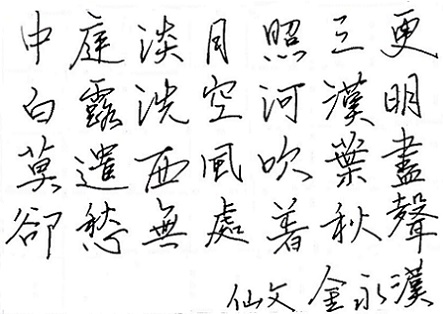 中庭淡月照三更
白露洗空河漢明
莫遣西風吹葉盡
卻愁無處着秋聲
仙文 金永漢